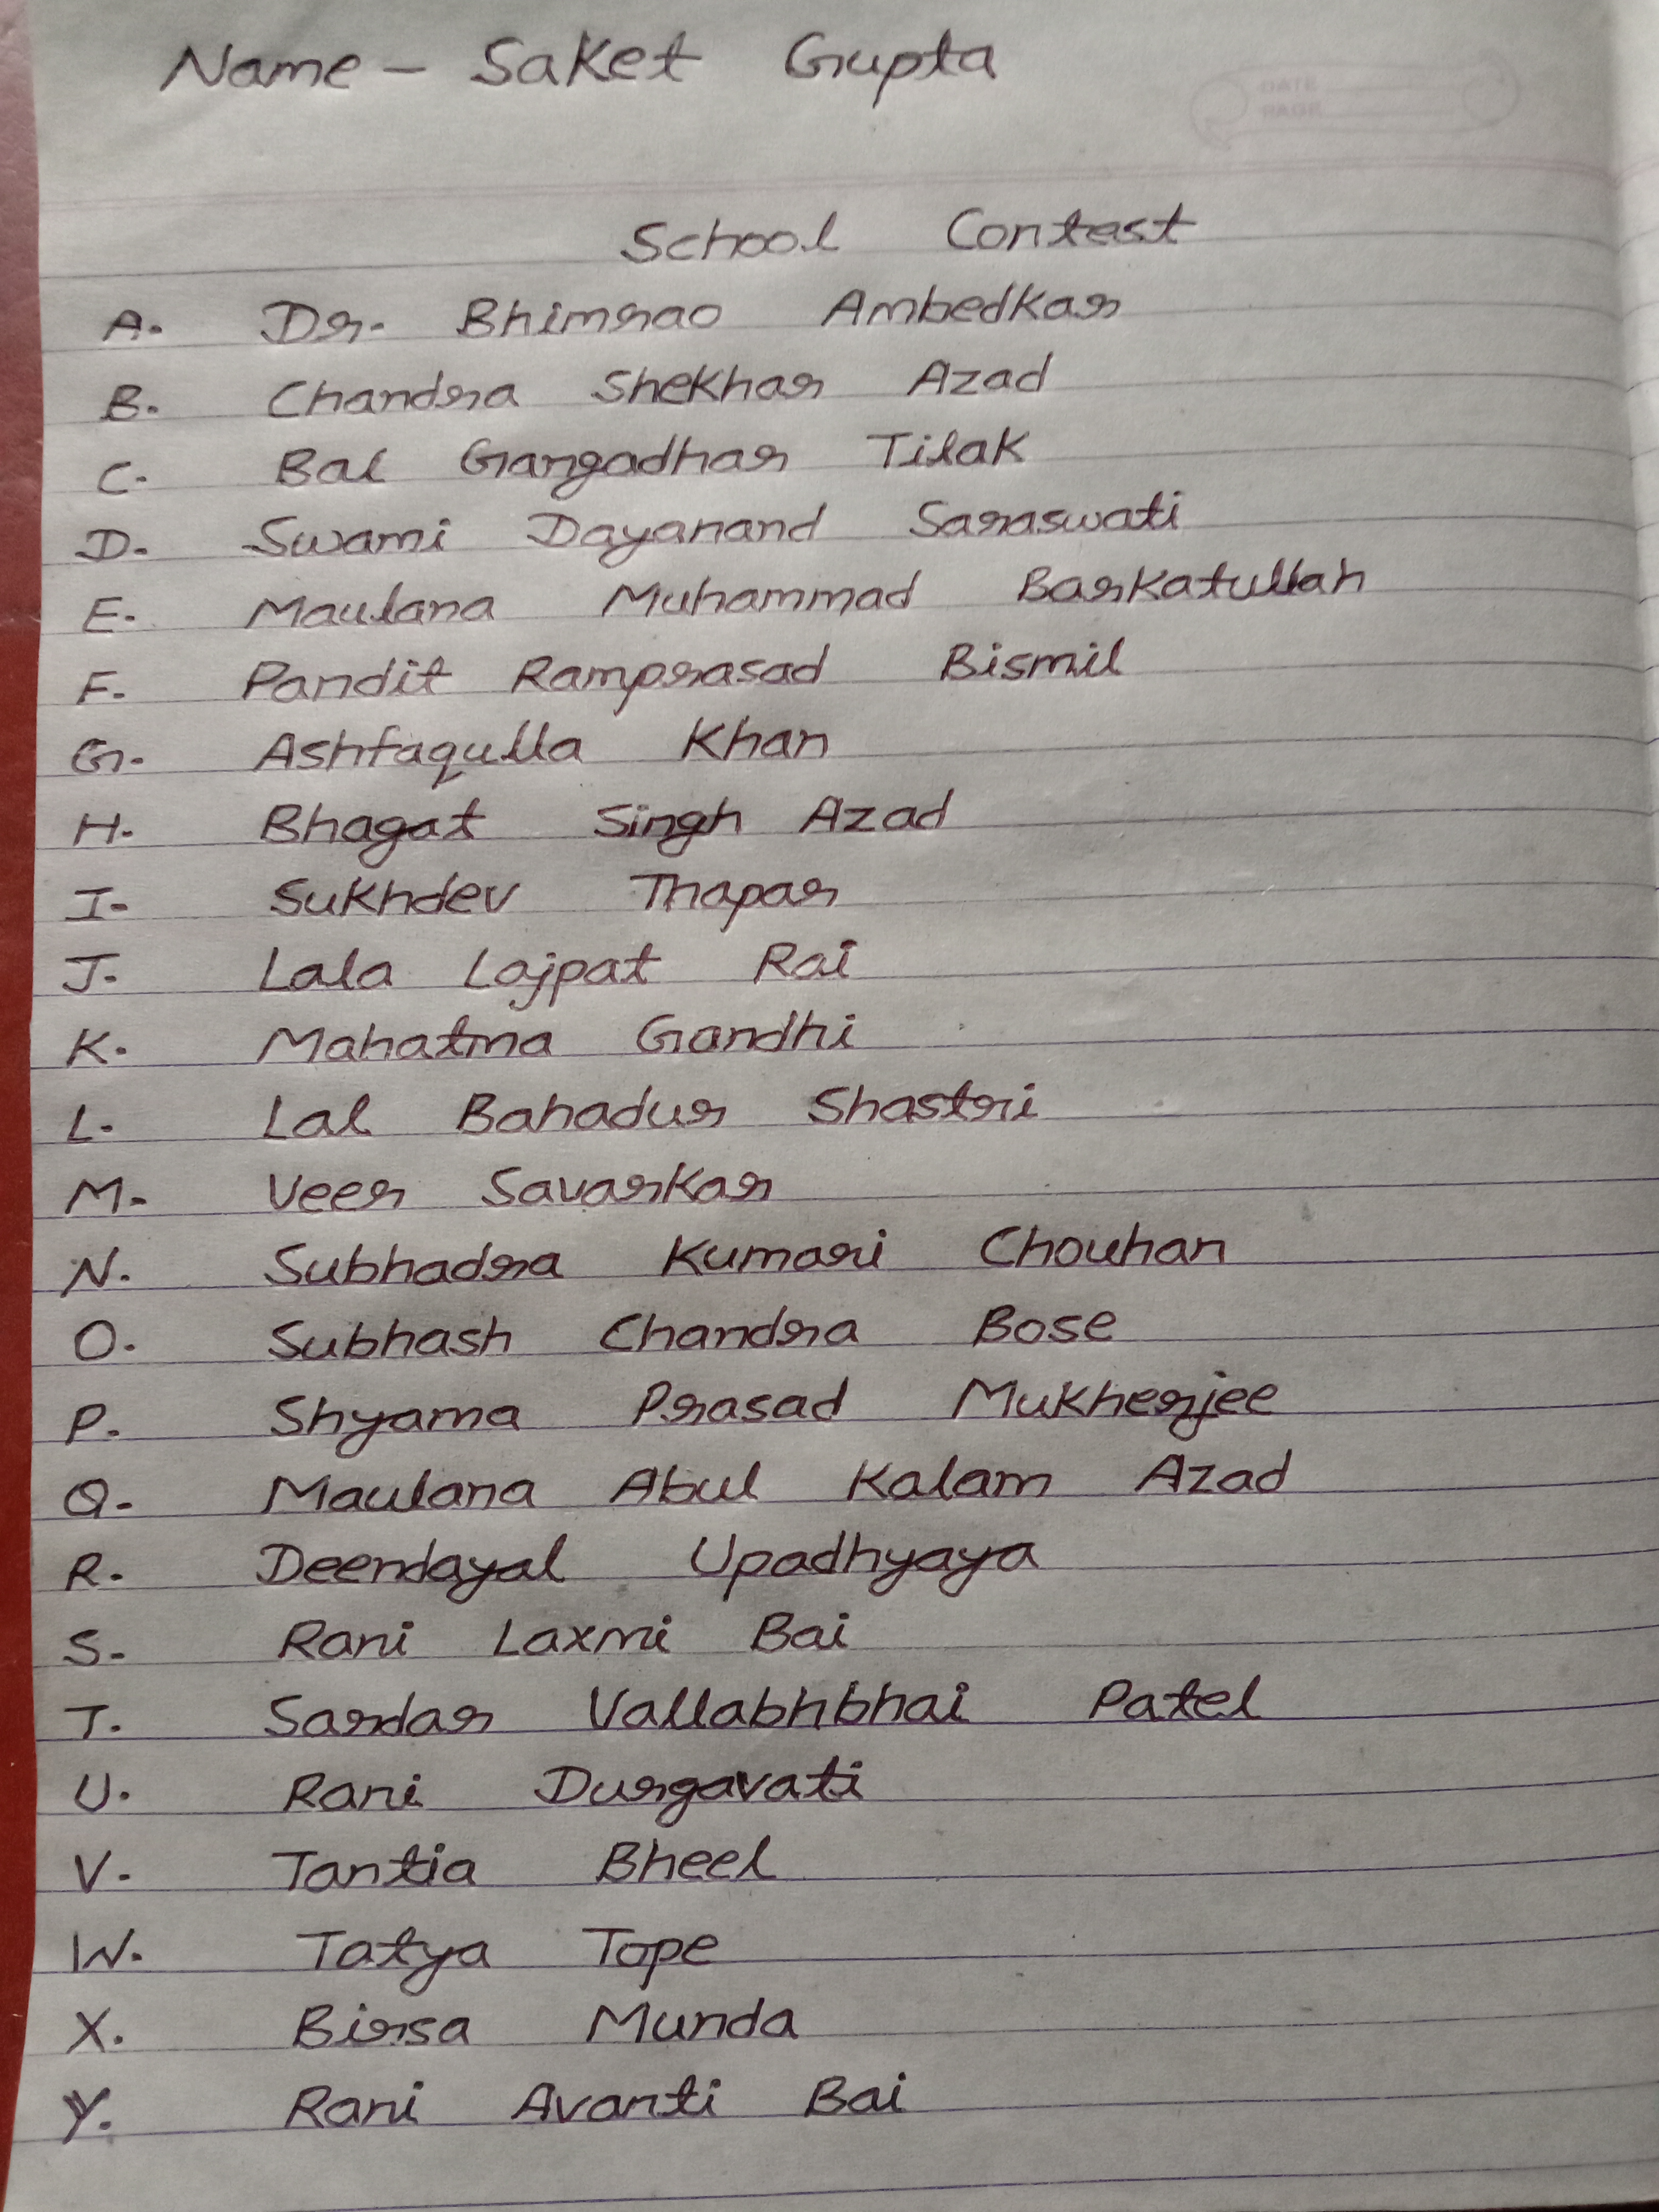 Name - Saket Gupta
DATE
PAGE
School Contest
A. Dr. Bhimrao Ambedkar
B. Chandra Shekhar Azad
C. Bal Gangadhar Tilak
D. Swami Dayanand Saraswati
E. Maulana Muhammad Barkatullah
F. Pandit Ramprasad Bismil
G. Ashfaqulla Khan
H. Bhagat Singh Azad
I. Sukhdev Thapar
J. Lala Lajpat Rai
K. Mahatma Gandhi
L. Lal Bahadur Shastri
M. Veer Savarkar
N. Subhadra Kumari Chouhan
O. Subhash Chandra Bose
P. Shyama Prasad Mukherjee
Q. Maulana Abul Kalam Azad
R. Deendayal Upadhyaya
S. Rani Laxmi Bai
T. Sardar Vallabhbhai Patel
U. Rani Durgavati
V. Tantia Bheel
W. Tatya Tope
X. Birsa Munda
Y. Rani Avanti Bai